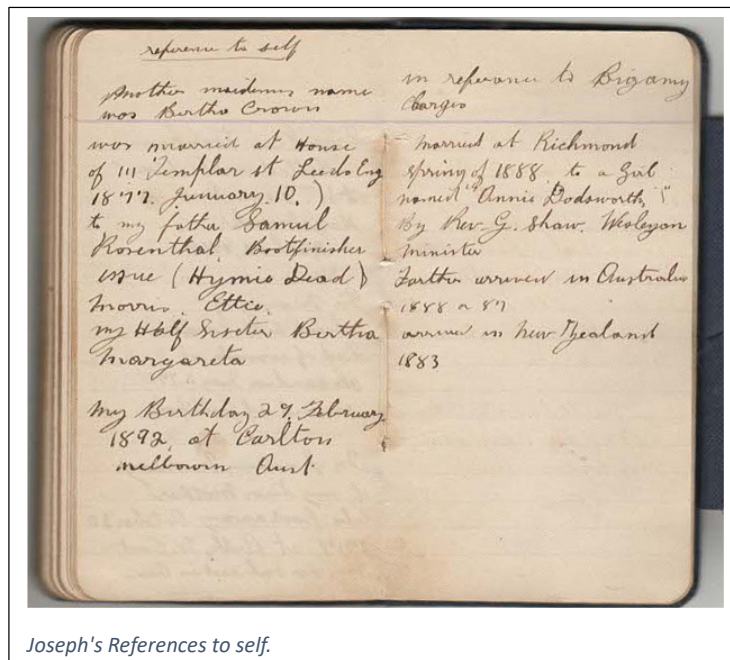 reference to self
Mother maidens name
was Bertha Crown
was married at House
of 111 Templar st Leeds Eng
1877. January. 10.)
to my father Samul
Rosenthal. Bootfinisher
issue (Hymie Dead)
Morris. Ettie.
my Half Sister Bertha
Margareta
My Birthday 29. February
1892, at Carlton
Melbourn Aust.
in referance to Bigamy
Charges
Married at Richmond
spring of 1888, to a Girl
named "Annie Dodsworth,"
By Rev. G. Shaw. Wesleyan
Minister
Farther arrived in Australia
1888 or 87
arrived in New Zealand
1883
Joseph's References to self.